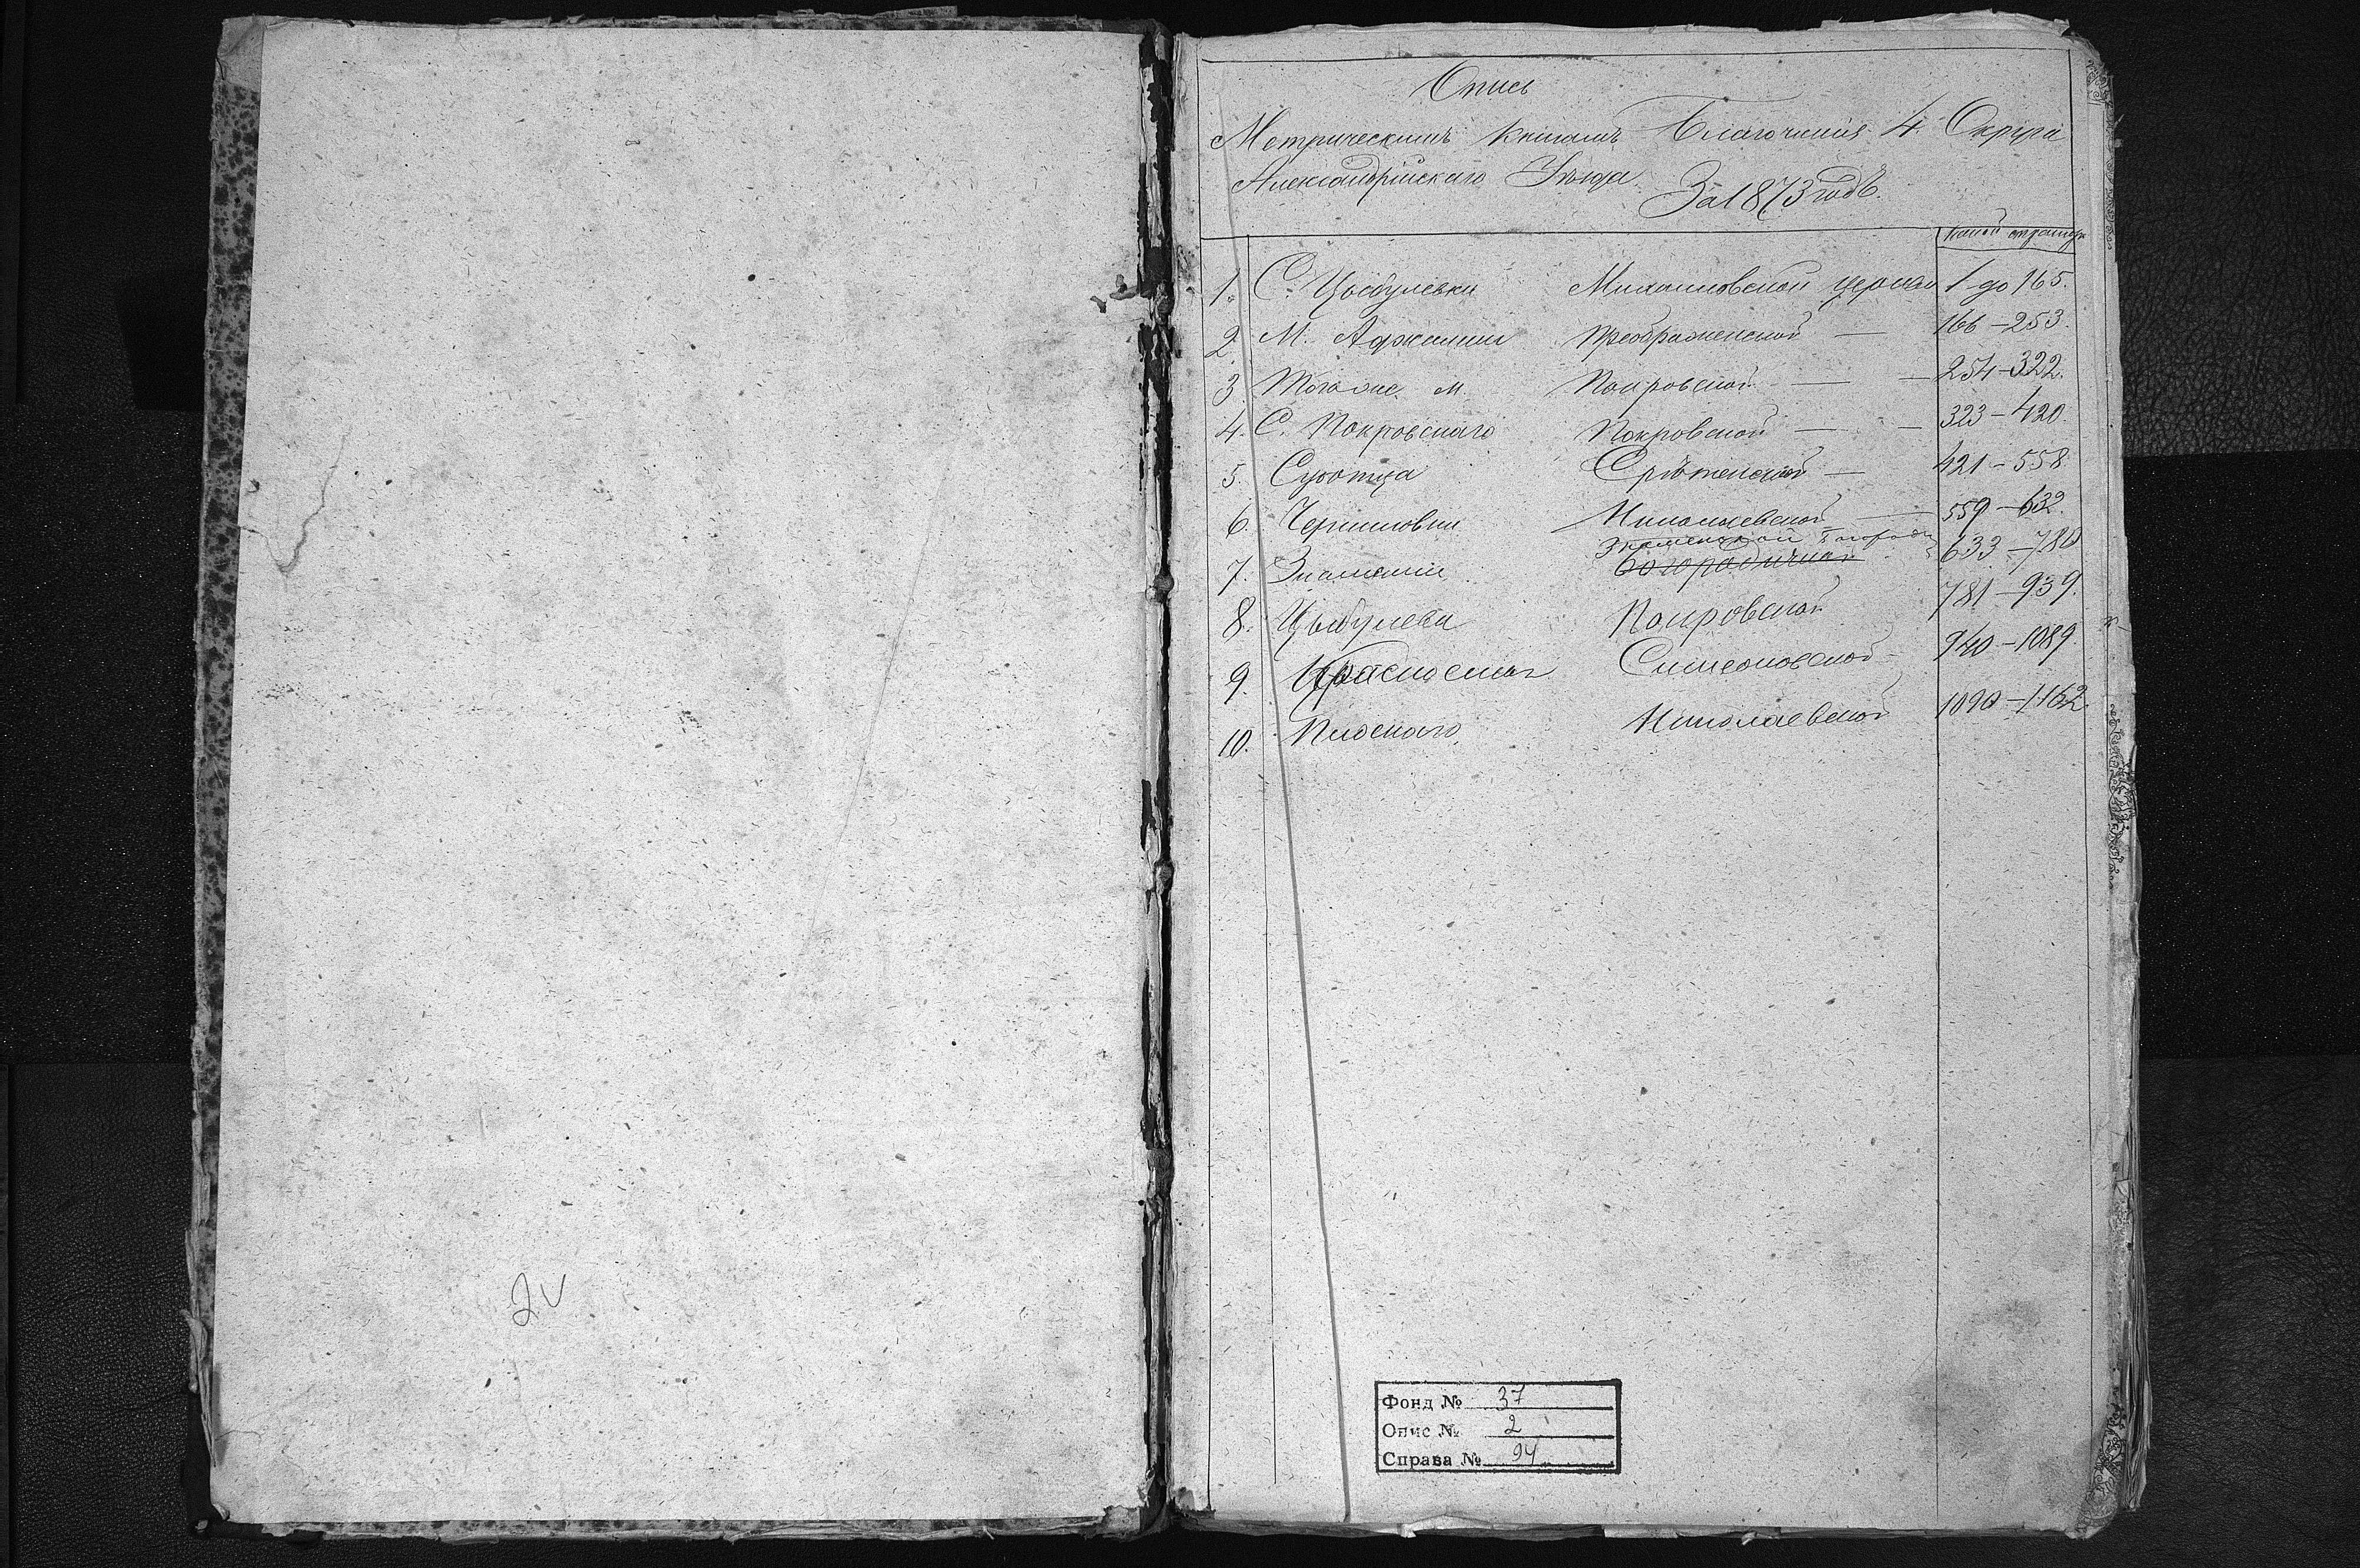 Опись
Метрическимъ книгамъ Благочинія 4 Округа
Александрійскаго Уѣзда
За 1873 годъ.
1. С. Цыбулевки Михаиловской церкви 1 до 165.
2. М. Аджамки Преображенской — 166 – 253.
3. Тогоже М. Покровской — — 254 – 322.
4. С. Покровскаго Покровской — — 323 – 420.
5. Суботца Срѣтенской — 421 – 558
6. Николаевской — 559 – 632.
Знаменской
7. Знаменки Богородичной 633 – 780
8. Цыбулева Покровской 781 – 939.
9. Симеоновской 940 – 1089.
10. Плоскаго Николаевской 1090 – 1162.
2
Фонд № 37
Опис № 2
Справа № 94